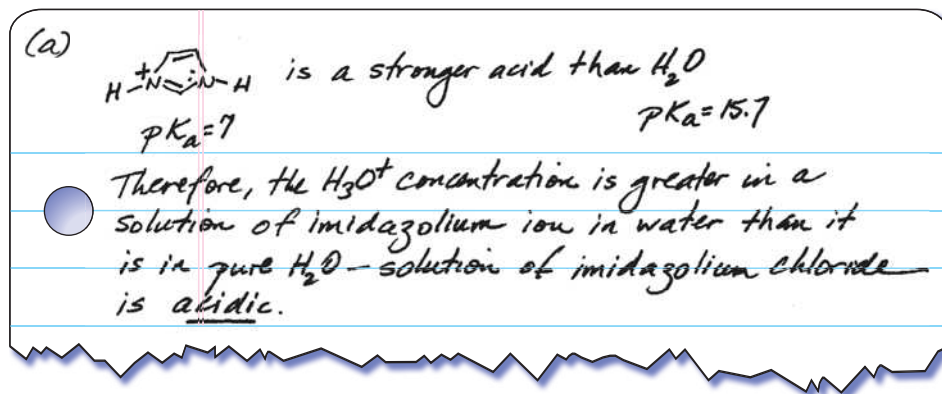 (a)
H-N+ :N-H is a stronger acid than H₂O
pKa=7 pKa=15.7
Therefore, the H₃O⁺ concentration is greater in a
solution of imidazolium ion in water than it
is in pure H₂O – solution of imidazolium chloride
is acidic.